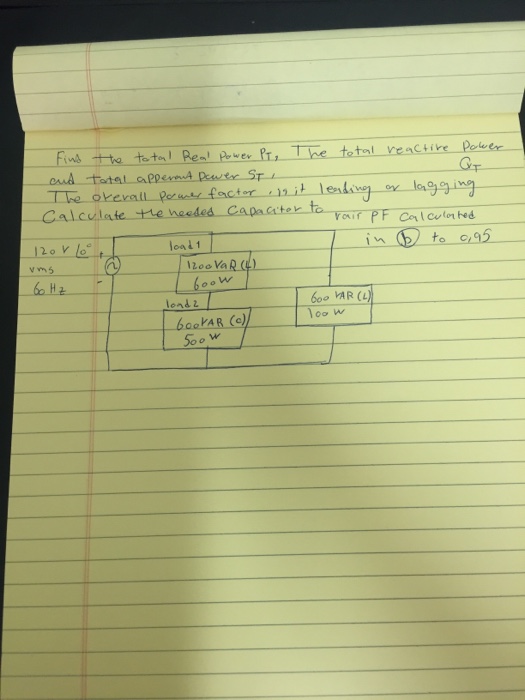 Find the total Real Power PT, The total reactive Power QT
and total apperant Power ST.
The overall power factor, is it leading or lagging
Calculate the needed Capacitor to rair PF Calculated
in (b) to 0,95
120 V /0°
rms
60 Hz
+
-
load 1
1200 VAR (L)
600 W
load 2
600 VAR (C)
500 W
600 VAR (L)
100 W